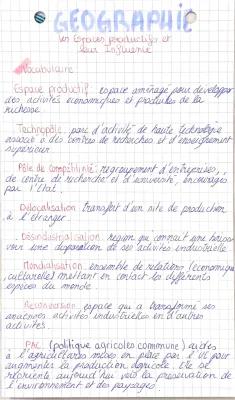 GEOGRAPHIE
les Espaces productifs et
leur Influence
Vocabulaire
Espace productif: espace aménagé pour développer
des activités économiques et produire de la
richesse.
Technopôle: parc d'activité de haute technologie
associé à des centres de recherches et d'enseignement
supérieur.
Pôle de compétitivité: regroupement d'entreprises,
de centre de recherche et d'université, encouragés
par l'Etat.
Délocalisation: transfert d'un site de production
à l'étranger.
Désindustrialisation: région qui connaît une baisse
voir une disparation de ses activités industrielle
Mondialisation: ensemble de relations (économique
culturelle) mettant en contact les différents
espaces du monde.
Reconversion: espace qui a transformé ses
anciennes activités industrielles en d'autres
activités.
PAC (politique agricoles commune) aides
à l'agricultures mises en place par l'UE pour
augmenter la production agricole. Elle se
réoriente aujourd'hui vers la préservation de
l'environnement et des paysages.